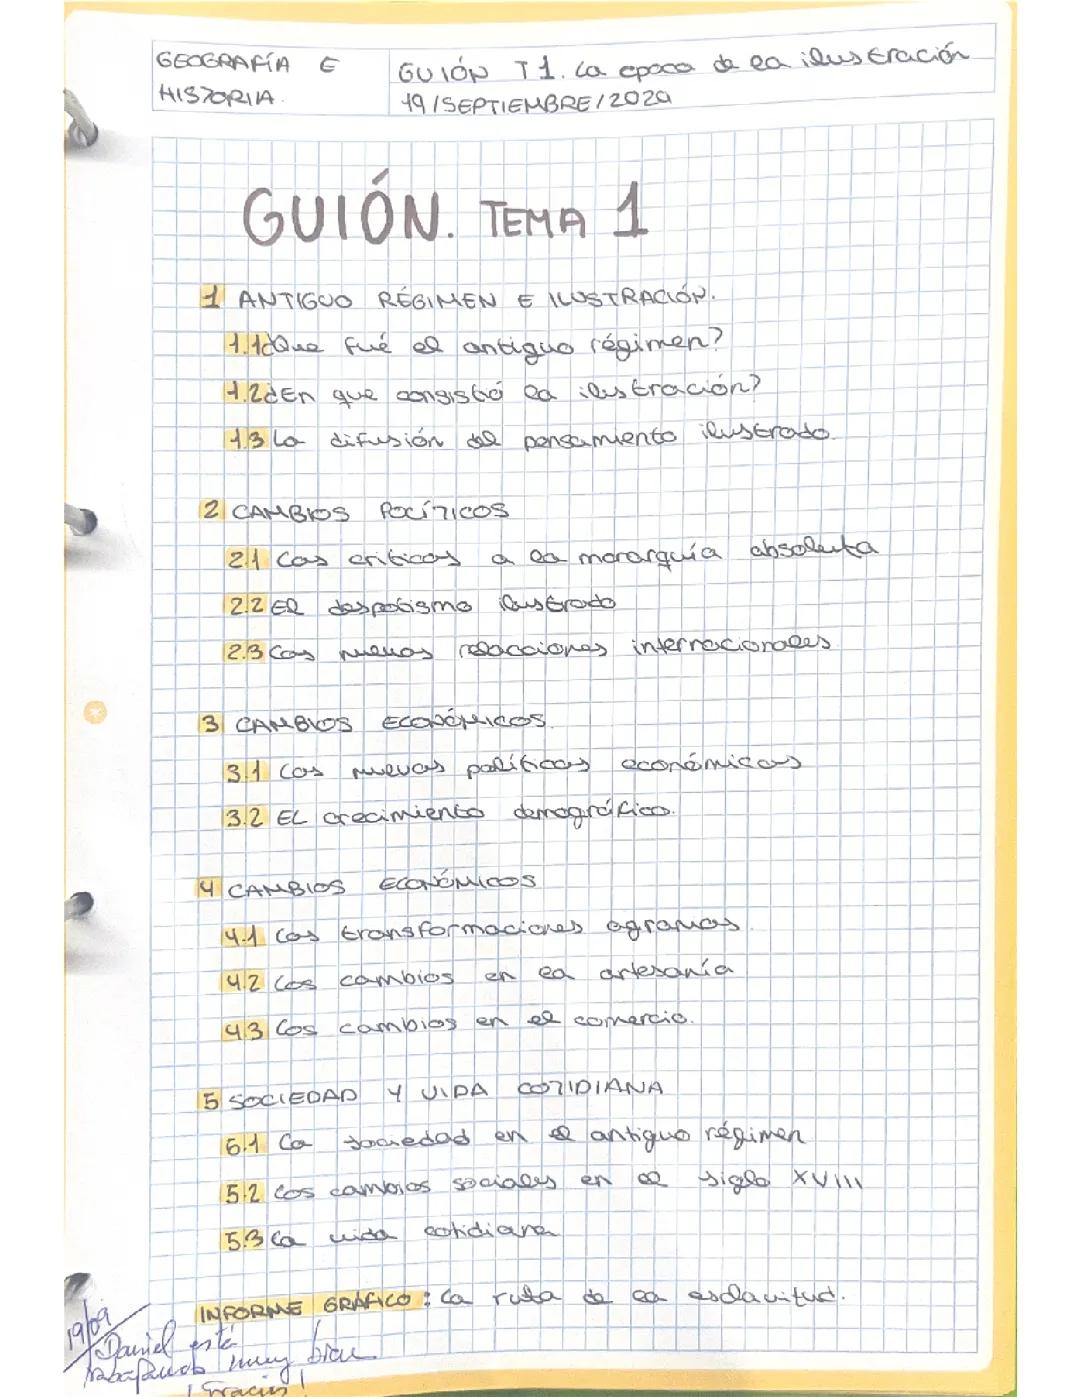 GEOGRAFÍA E
HISTORIA.
GUIÓN T1. La epoca de la ilustración
19/SEPTIEMBRE/2020
GUIÓN. TEMA 1
1 ANTIGUO RÉGIMEN E ILUSTRACIÓN.
1.1¿Que fué el antiguo régimen?
1.2¿En que consistió la ilustración?
1.3 La difusión del pensamiento ilustrado.
2 CAMBIOS POLÍTICOS
2.1 Las criticas a la monarquía absoluta
2.2 El despotismo ilustrado
2.3 Las nuevas relacciones internacionales
3 CAMBIOS ECONÓMICOS.
3.1 Las nuevas políticas económicas
3.2 EL crecimiento demográfico.
4 CAMBIOS ECONÓMICOS
4.1 Las transformaciones agrarias.
4.2 Los cambios en la artesanía
4.3 Los cambios en el comercio.
5 SOCIEDAD Y VIDA COTIDIANA
5.1 La sociedad en el antiguo régimen
5.2 Los cambios sociales en el siglo XVIII
5.3 La vida cotidiana
INFORME GRÁFICO: La ruta de la esclavitud.
19/09
Daniel está
trabajando muy bien
¡Gracias!